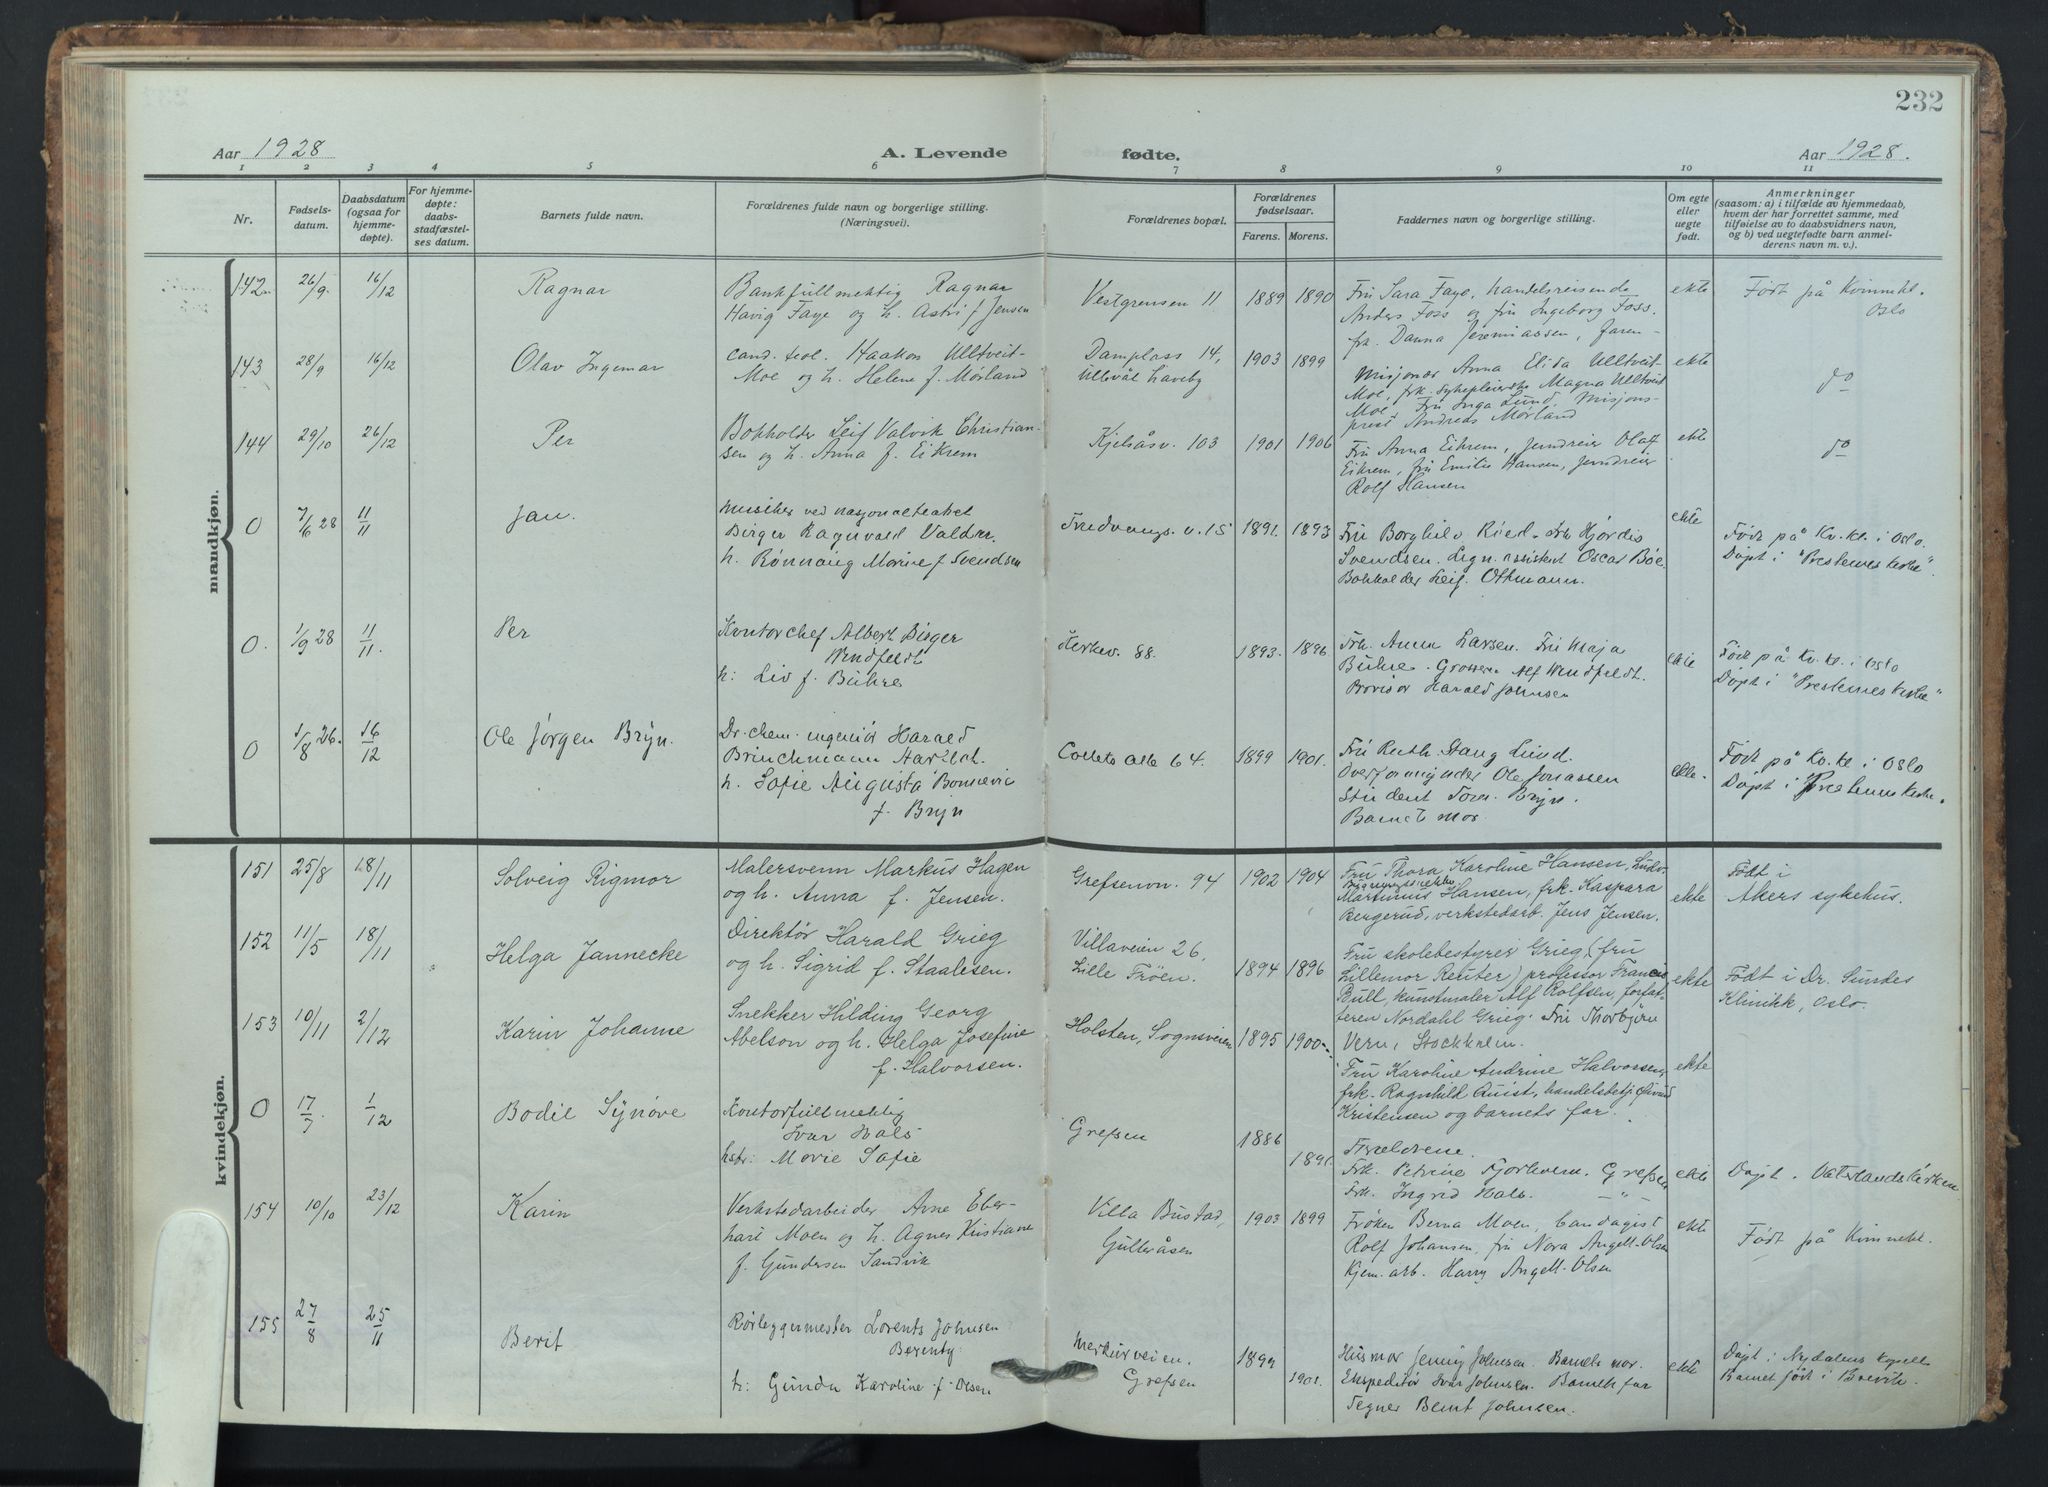 232
Aar 1928
A. Levende
fødte.
Aar 1928.
1 2 3 4 5 6 7 8 9 10 11
Nr.
Fødsels-
datum.
Daabsdatum
(ogsaa for
hjemme-
døpte).
For hjemme-
døpte:
daabs-
stadfæstel-
ses datum.
Barnets fulde navn.
Forældrenes fulde navn og borgerlige stilling.
(Næringsvei).
Forældrenes bopæl.
Forældrenes
fødselsaar.
Farens. Morens.
Faddernes navn og borgerlige stilling.
Om egte
eller
uegte
født.
Anmerkninger
(saasom: a) i tilfælde av hjemmedaab,
hvem der har forrettet samme, med
tilføielse av to daabsvidners navn,
og b) ved uegtefødte barn anmel-
derens navn m. v.).
mandkjøn.
142 26/9 16/12 Ragnar
Bankfullmektig Ragnar
Havig Faye og h. Astri f. Jensen
Vestgrensen 11 1889 1890
Fru Sara Faye, handelsreisende
Anders Foss og fru Ingeborg Foss.
frk. Danna Jeremiassen, faren
ekte
Født på Kvinnekl.
Oslo
143 28/9 16/12 Olav Ingemar
cand. teol. Haakon Ulltveit-
Moe og h. Helene f. Mørland
Damplass 14,
Ullevål haveby
1903 1899
Misjonær Anna Elida Ulltveit-
Moe, frk. sykepleierske Magna Ulltveit
Moe, Fru Inga Lund, Misjons-
prest Andreas Mørland
ekte
do
144 29/10 26/12 Per
Bokholder Leif Valvik Christian-
sen og h. Anna f. Eikrem
Kjelsåsv. 103 1901 1906
Fru Anna Eikrem, Jerndreier Olaf
Eikrem, fru Emilie Hansen, jerndreier
Rolf Hansen
ekte
do
0 7/6 28 11/11 Jan.
Musiker ved nasjonalteatret
Birger Ragnvald Valdre.
h. Rønnaug Marine f Svendsen
Tredvangs. v. 15 1891. 1893
Fru Borghild Ried. Frk Hjørdis
Svendsen. Lign. assistent Oscar Bøe.
Bokholder Leif Othmann.
ekte
Født på Kv. kl. i Oslo.
Døpt i "Prestenes kirke".
0. 1/9 28 11/11. Per
Kontorchef Albert Birger
Wendfeldt
h: Liv f. Bühre
88. 1893. 1896
Frk. Anna Larsen. Fru Maja
Bühre. Grosserer Alf Wendfeldt.
Provisor Harald Johnsen
ekte
Født på Kv. kl. i Oslo
Døpt i "Prestenes kirke"
0 1/8 26. 16/12 Ole Jørgen Bryn.
Dr. chem. ingeniør Harald
Brinchmann
h. Sofie Augusta Bonnevie
f. Bryn
Collets alle 64. 1899 1901.
Fru Ruth Stang Lund.
Overformynder Ole Jonassen
Student Tom. Bryn.
Barnets mor.
ekte.
Født på Kv. kl i Oslo
Døpt i Prestenes kirke.
kvindekjøn.
151 25/8 18/11 Solveig Rigmor
Malersvenn Markus Hagen
og h. Anna f. Jensen.
Grefsenvn. 94 1902 1904
Fru Thora Karoline Hansen,
Martinius Hansen, frk. Kaspara
Bergerud, verkstedarb. Jens Jensen.
ekte
Født i
Akers sykehus.
152 11/5 18/11 Helga Jannecke
Direktør Harald Grieg
og h. Sigrid f. Staalesen.
Villaveien 26,
Lille Frøen.
1894 1896
Fru skolebestyrer Grieg (fru
Lillemor Reuter) professor Francis
Bull, kunstmaler Alf Rolfsen, forfat-
teren Nordahl Grieg. Fru Thorbjørn
Vern, Stockholm.
ekte
Født i Dr. Sundes
Klinikk, Oslo.
153 10/11 2/12 Karin Johanne
Snekker Hilding Georg
Abelson og h. Helga Josefine
f. Halvorsen.
Holsten, Sognsveien 1895 1900
Fru Karoline Andrine Halvorsen,
frk. Ragnhild Quist, handelsbetj. Øivind
Kristensen og barnets far.
ekte
0 17/7 1/12 Bodil Synøve
Kontorfullmektig
Ivar Hals
hstr: Marie Sofie
Grefsen 1886 1891.
Forældrene.
Frk. Petrine Fjorholm. Grefsen
Frk. Ingrid Hals. — " —
ekte
Døpt. Vaterlandskirken
154 10/10 23/12 Karin
Verkstedarbeider Arne Eber-
hart Moen og h. Agnes Kristiane
f. Gundersen Sandvik
Villa Bustad,
Gulleråsen
1903 1899
Frøken Berna Moen, bandagist
Rolf Johansen, fru Nora Angell-Olsen
Kjem. arb. Harry Angell-Olsen
ekte
Født på Kvinnekl.
155 27/8 25/11 Berit
Rørleggermester Lorents Johnsen
h: Gunda Karoline f. Olsen
Merkurveien.
Grefsen
1899 1901.
Husmor Jenny Johnsen. Barnets mor.
Ekspeditør Ivar Johnsen. Barnets far
Tegner Bernt Johnsen.
ekte
Døpt i Nydalens kapell
Barnet født i Brevik.